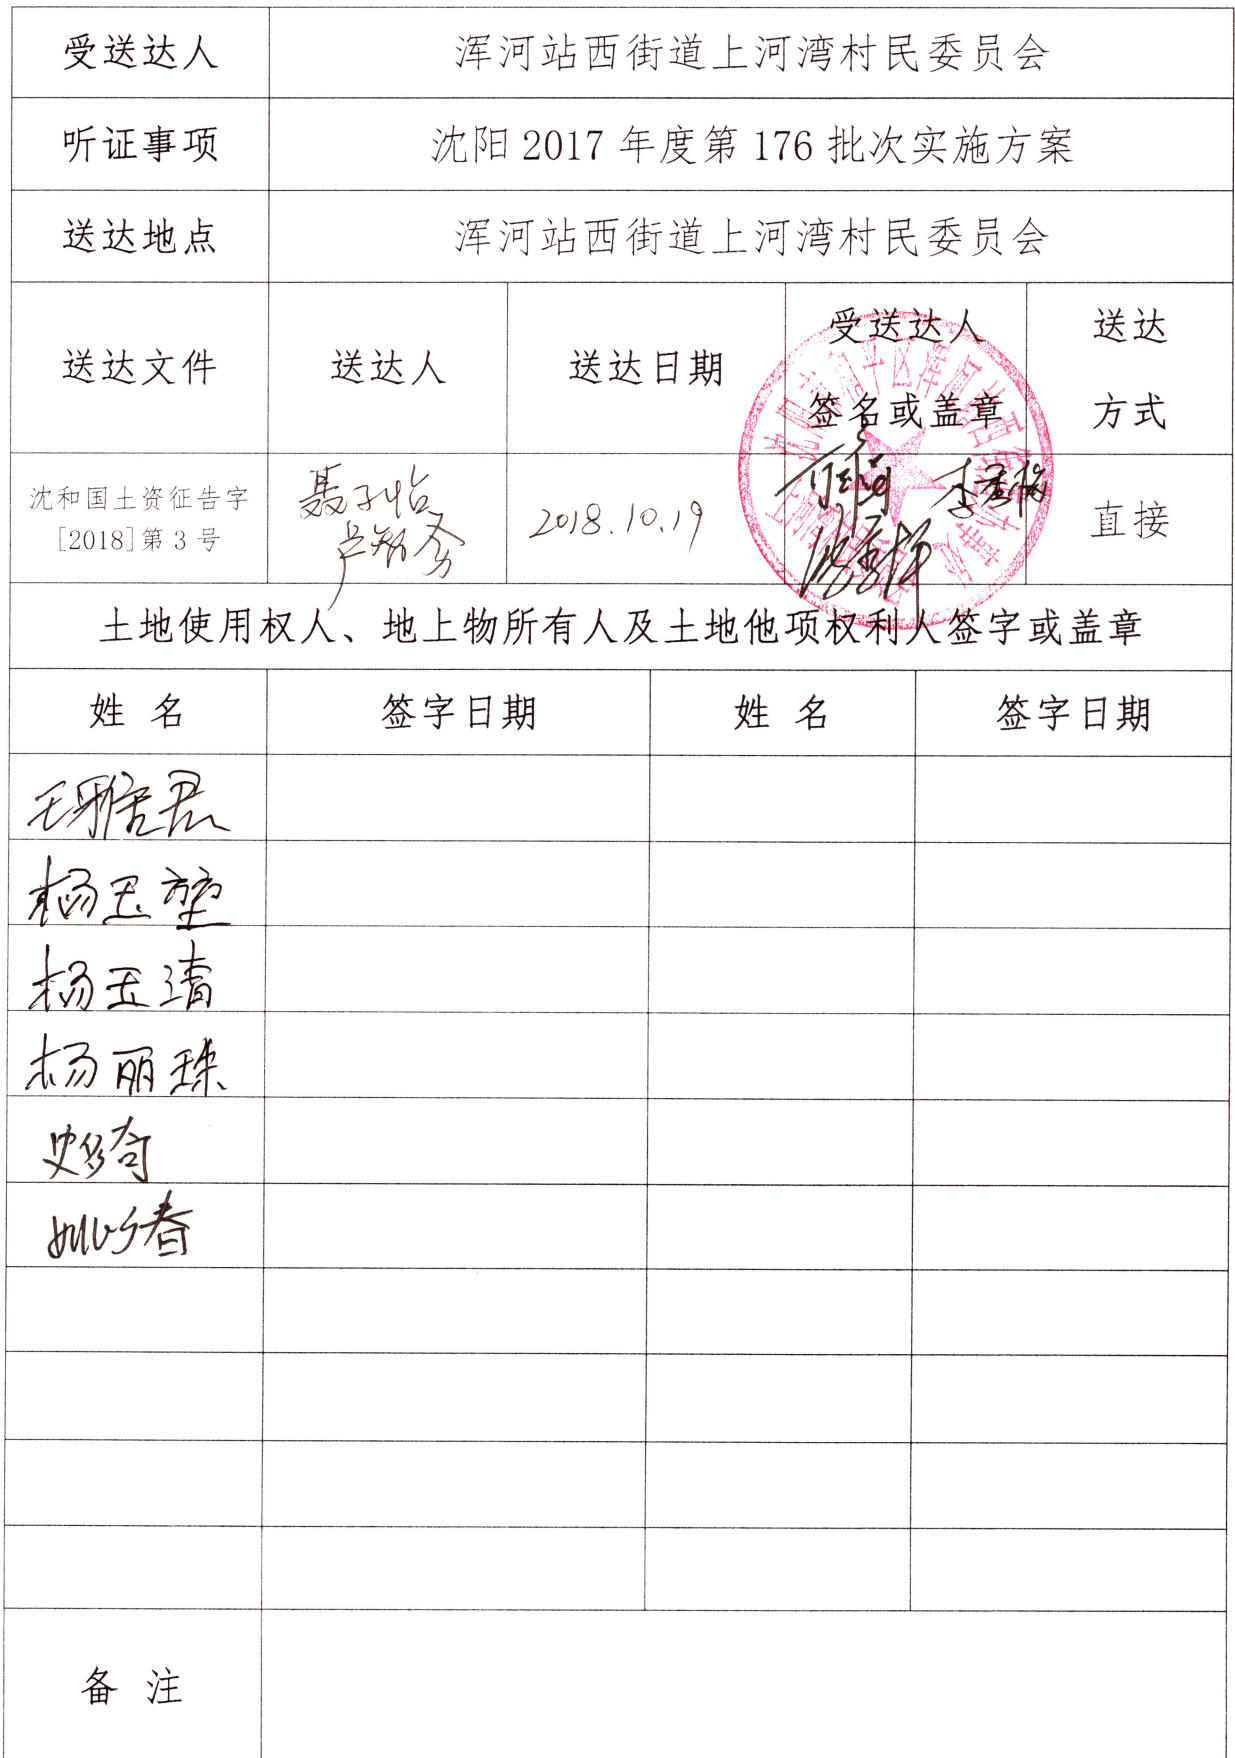 受送达人 浑河站西街道上河湾村民委员会
听证事项 沈阳 2017 年度第 176 批次实施方案
送达地点 浑河站西街道上河湾村民委员会
送达文件 送达人 送达日期 受送达人 签名或盖章 送达 方式
沈和国土资征告字
[2018]第 3 号
聂子怡
2018.10.19
直接
土地使用权人、地上物所有人及土地他项权利人签字或盖章
姓 名 签字日期 姓 名 签字日期
杨玉清
杨丽珠
备 注